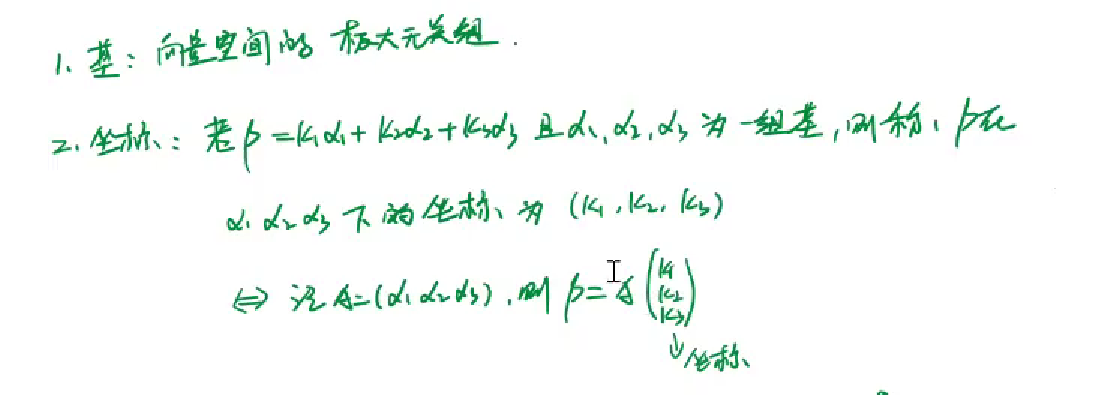 1. 基：向量空间的 极大无关组.
2. 坐标：若β=k₁α₁+k₂α₂+k₃α₃ 且α₁,α₂,α₃ 为一组基,则称 β在
α₁ α₂ α₃ 下的坐标为 (k₁,k₂,k₃)
⇔ 记A=(α₁ α₂ α₃),则 β=A(k₁ k₂ k₃)
↓坐标